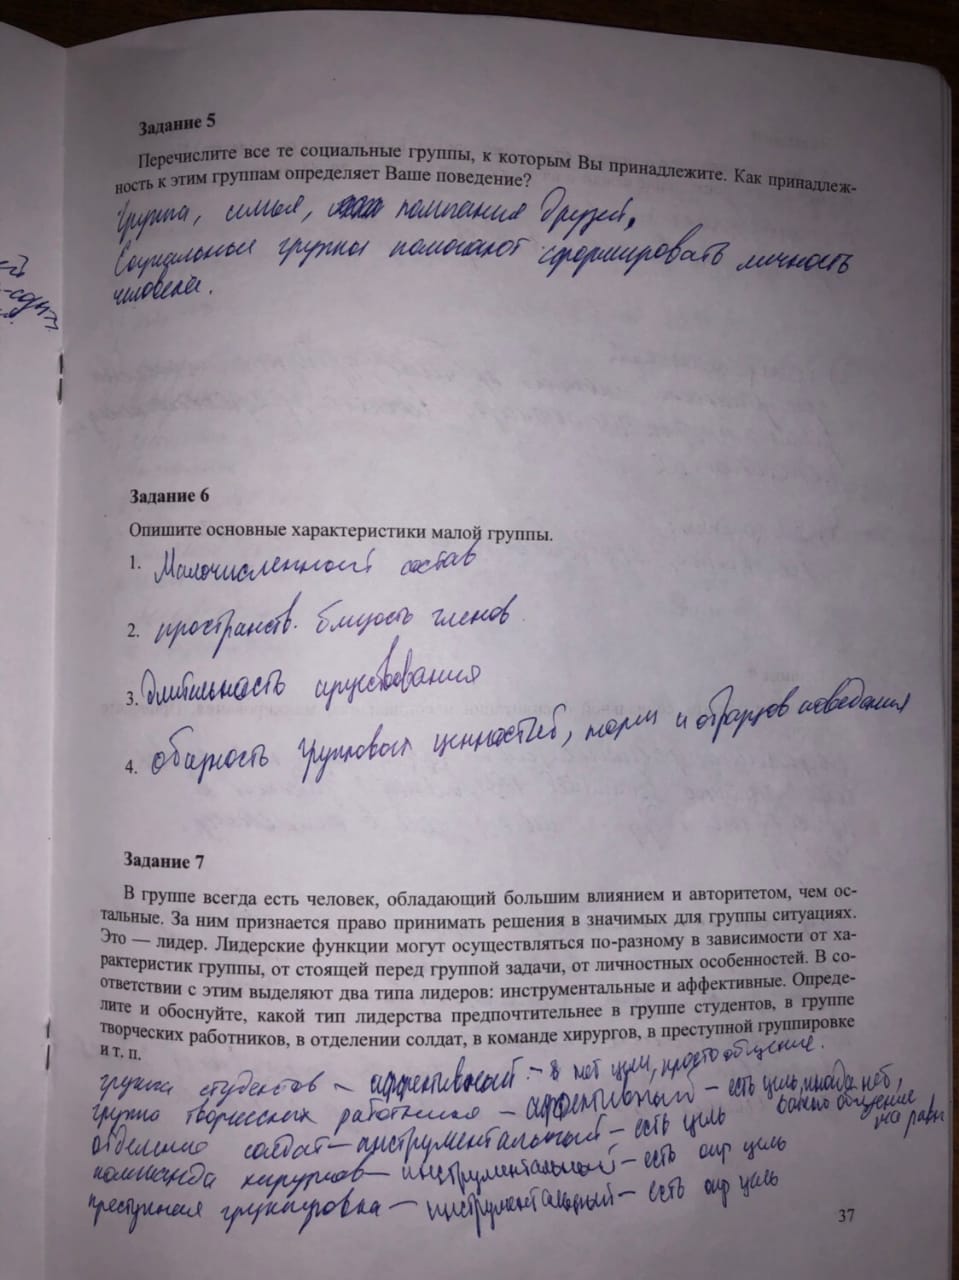 Задание 5
Перечислите все те социальные группы, к которым Вы принадлежите. Как принадлеж-
ность к этим группам определяет Ваше поведение?
Группа, семья, компания друзей.
Социальные группы помогают сформировать личность
человека.
Задание 6
Опишите основные характеристики малой группы.
1. Малочисленный состав
2. пространств. близость членов
3. длительность существования
4. общность групповых ценностей, норм и образцов поведения
Задание 7
В группе всегда есть человек, обладающий большим влиянием и авторитетом, чем ос-
тальные. За ним признается право принимать решения в значимых для группы ситуациях.
Это — лидер. Лидерские функции могут осуществляться по-разному в зависимости от ха-
рактеристик группы, от стоящей перед группой задачи, от личностных особенностей. В со-
ответствии с этим выделяют два типа лидеров: инструментальные и аффективные. Опреде-
лите и обоснуйте, какой тип лидерства предпочтительнее в группе студентов, в группе
творческих работников, в отделении солдат, в команде хирургов, в преступной группировке
и т. п.
группа студентов – аффективный – нет цели, просто общение.
группа творческих работников – аффективный – есть цель, иногда нет,
важно общение
на равн
отделение солдат – инструментальный – есть цель
команда хирургов – инструментальный – есть опр цель
преступная группировка – инструментальный – есть опр цель
37